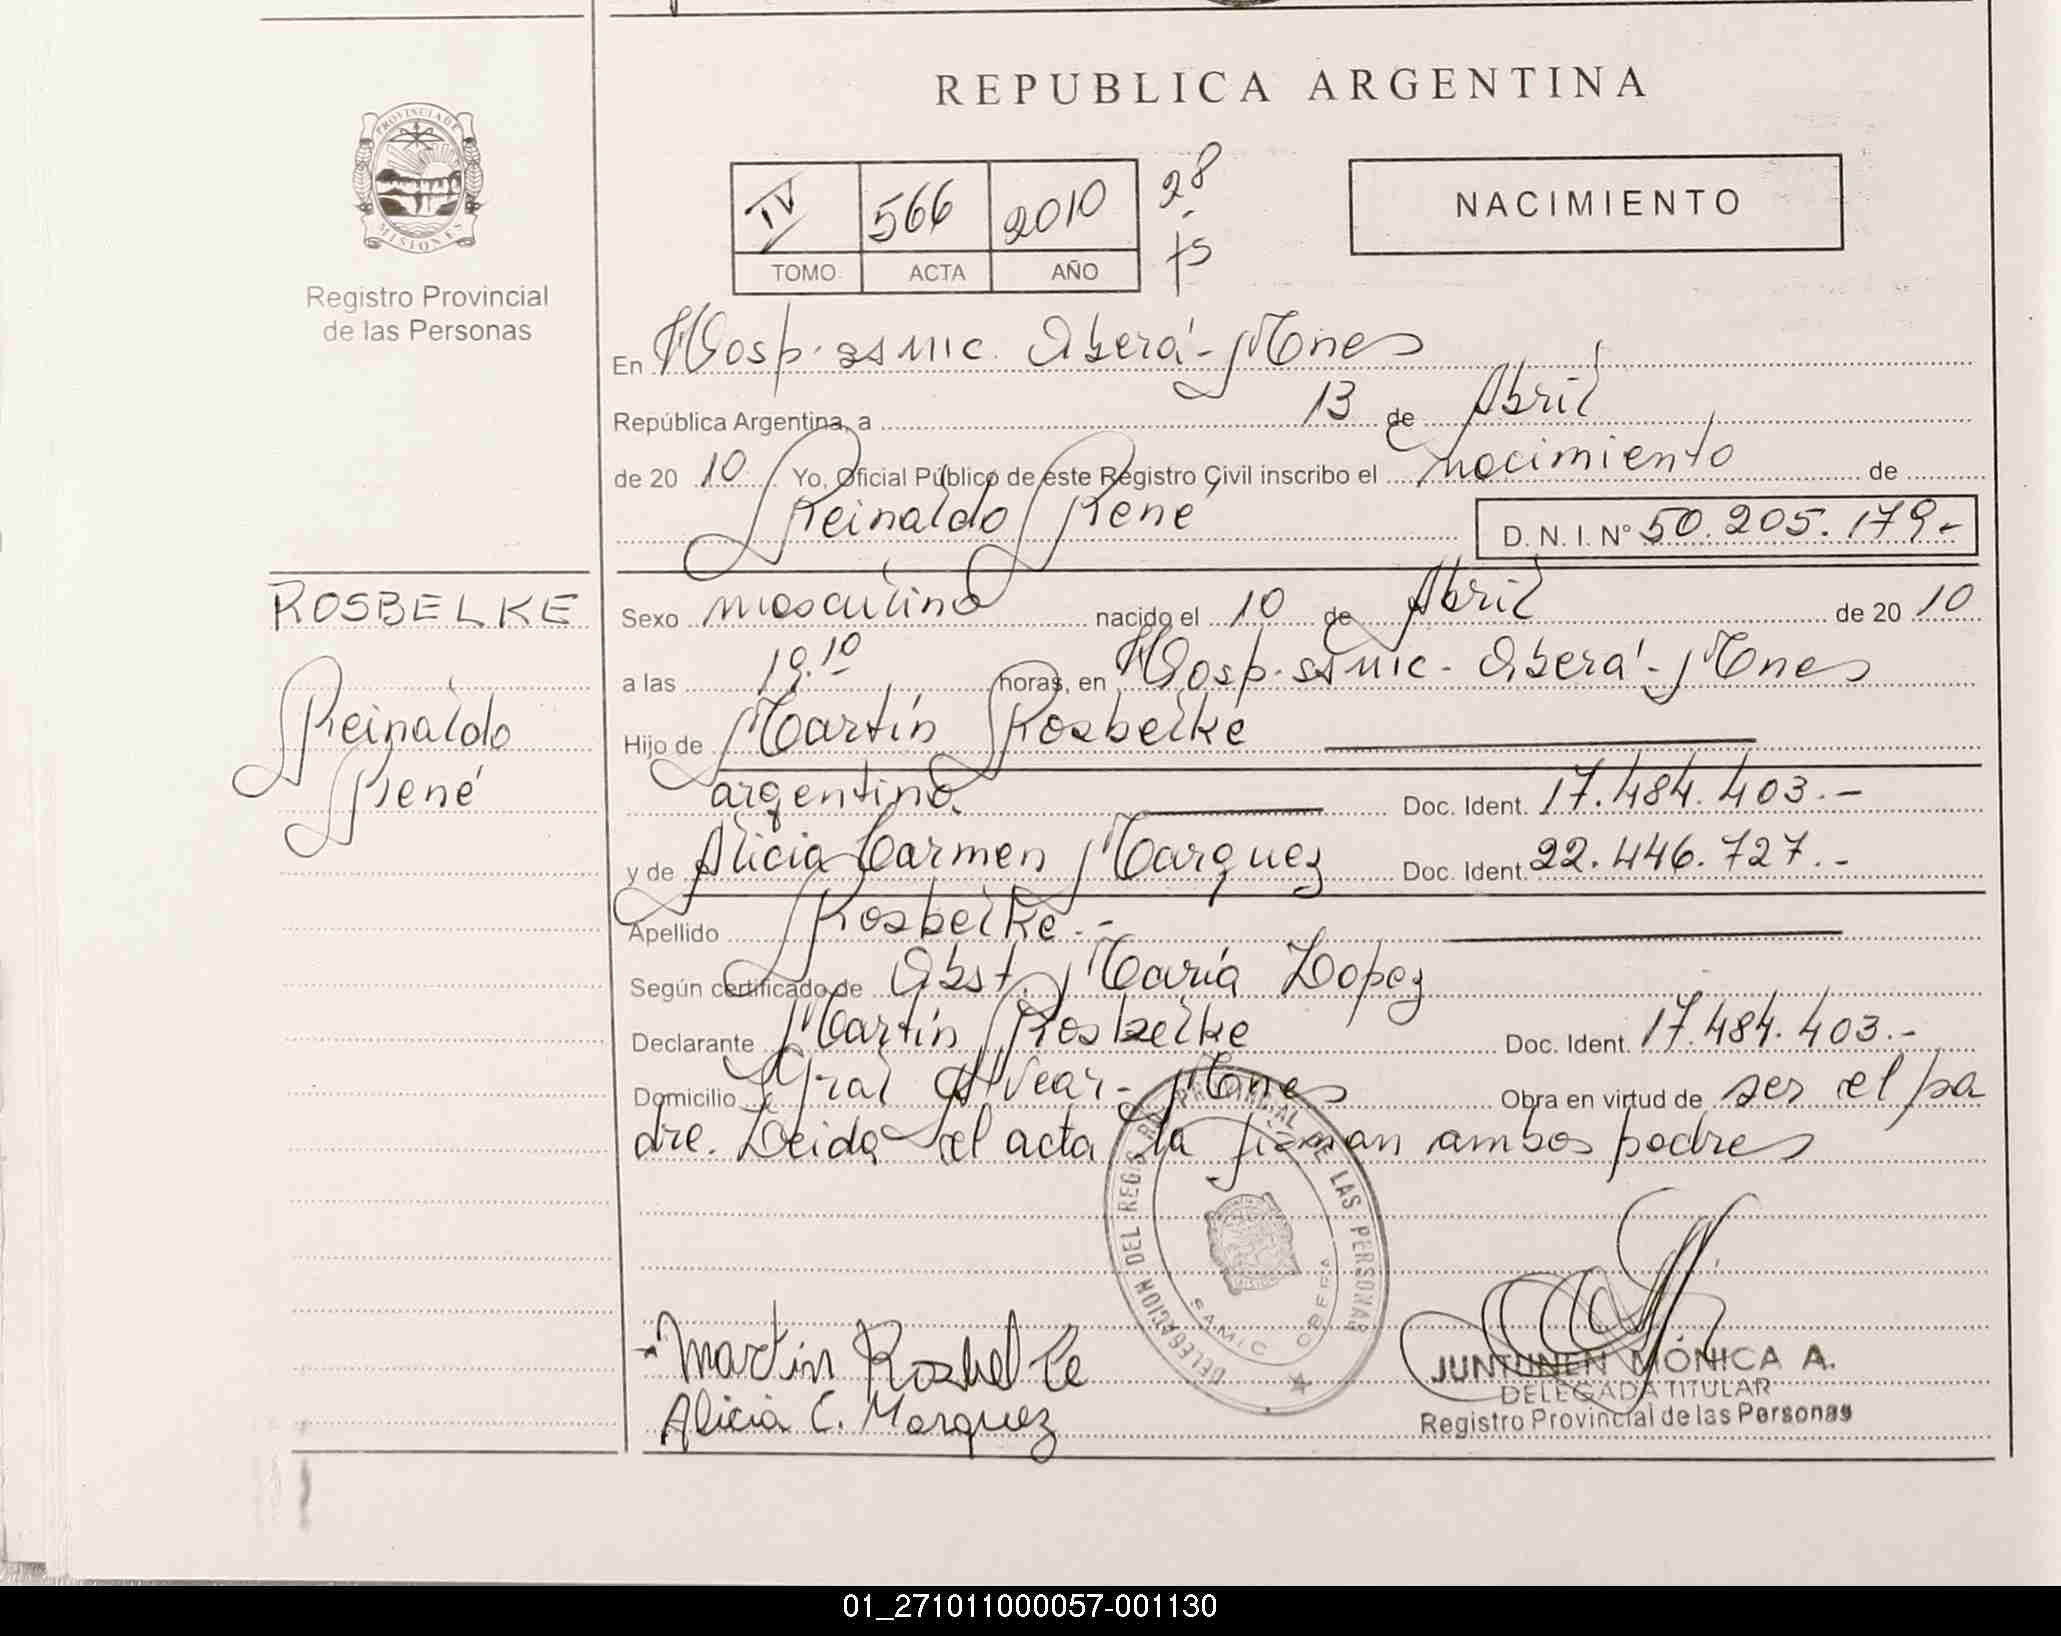 REPUBLICA ARGENTINA
PROVINCIA DE
MISIONES
Registro Provincial
de las Personas
IV 566 2010 28
TOMO ACTA AÑO fs
NACIMIENTO
En Hosp. samic. Oberá - Mnes
República Argentina, a 13 de Abril
de 20 10 Yo, Oficial Público de este Registro Civil inscribo el nacimiento de
Reinaldo René D. N. I. Nº 50.205.179.-
ROSBELKE
Reinaldo
René
Sexo masculino nacido el 10 de Abril de 20 10
a las 19.10 horas, en Hosp. samic - Oberá - Mnes
Hijo de Martín Rosbelke
argentino Doc. Ident. 17.484.403.-
y de Alicia Carmen Marquez Doc. Ident. 22.446.727.-
Apellido Rosbelke.-
Según certificado de Obst. María Lopez
Declarante Martín Rosbelke Doc. Ident. 17.484.403.-
Domicilio Gral Alvear - Mnes Obra en virtud de ser el pa
dre. Leida el acta la firman ambos padres
DELEGACION DEL REGISTRO PROVINCIAL DE LAS PERSONAS
SAMIC OBERA
Martin Rosbelke
Alicia C. Marquez
JUNTUNEN MÓNICA A.
DELEGADA TITULAR
Registro Provincial de las Personas
01_271011000057-001130